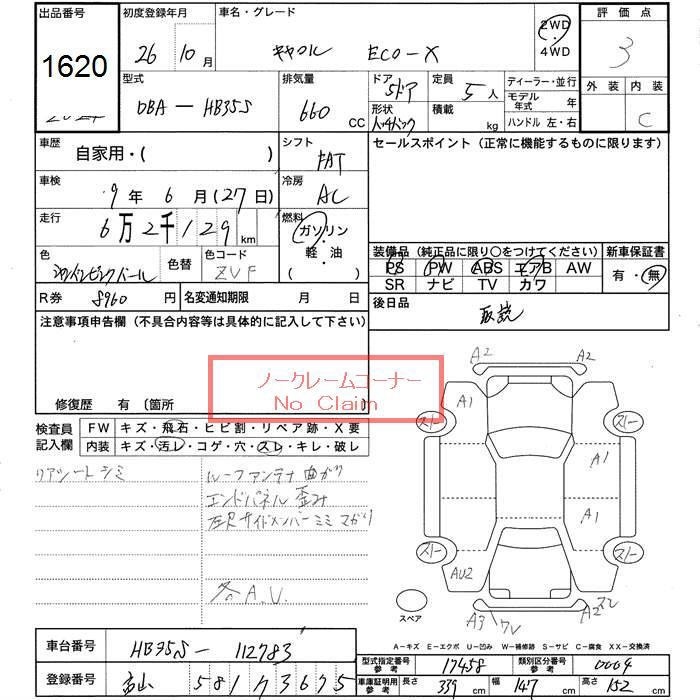 出品番号
1620
初度登録年月
26 10月
車名・グレード
キャロル ECO-X
2WD・4WD
評価点
3
型式
DBA-HB35S
排気量
660 CC
ドア
5ドア
形状
定員
5人
積載
kg
ディーラー・並行
モデル年式 年
ハンドル 左・右
外装
内装
C
車歴
自家用・( )
シフト
FAT
セールスポイント (正常に機能するものに限ります)
車検
9年 6月(27日)
冷房
AC
走行
6万2千129km
燃料
ガソリン・軽・油( )
色
色替
色コード
ZVF
装備品 (純正品に限り〇をつけてください)
PS PW ABS エアB AW
SR ナビ TV カワ
新車保証書
有・無
R券 8960円
名変通知期限 月 日
後日品
取説
注意事項申告欄 (不具合内容等は具体的に記入して下さい)
修復歴 有 〔箇所 〕
ノークレームコーナー
No Claim
検査員記入欄
FW キズ・飛石・ヒビ割・リペア跡・X要
内装 キズ・汚レ・コゲ・穴・スレ・キレ・破レ
リアシート シミ
ルーフアンテナ 曲がり
エンドパネル 歪み
左Rサイドメンバーミミ マガリ
各A.U.
A2
A2
A1
スノー
スノー
A1
A1
スノー
スノー
AU2
A3
A2
スペア
A-キズ E-エクボ U-凹み W-補修跡 S-サビ C-腐食 XX-交換済
車台番号
HB35S-112783
登録番号
富山 581 73675
型式指定番号 参考
17458
類別区分番号 参考
0004
車庫証明用 参考
長さ 339cm
幅 147cm
高さ 152cm